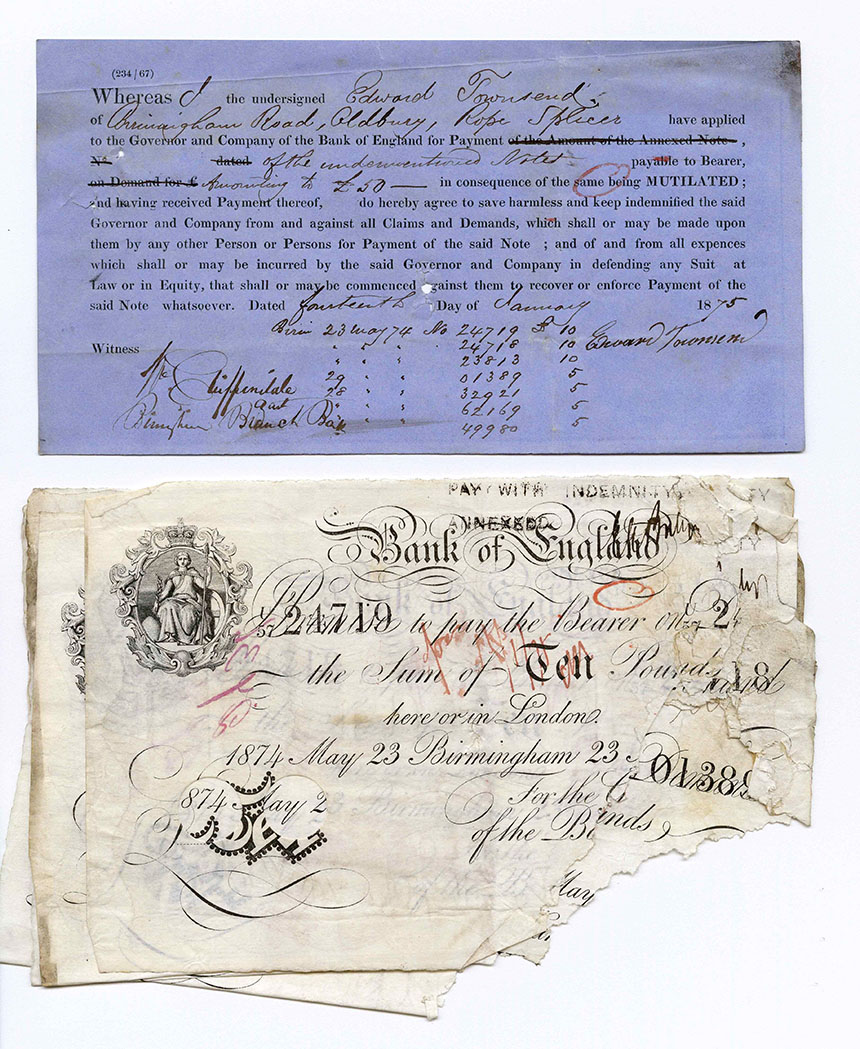 (234/67)
Whereas I the undersigned Edward Townsend
of Birmingham Road, Oldbury, Rope Splicer have applied
to the Governor and Company of the Bank of England for Payment of the Amount of the Annexed Note ,
No. dated of the undermentioned Notes payable to Bearer,
on Demand for £ Amounting to £50 — in consequence of the same being MUTILATED ;
and having received Payment thereof, do hereby agree to save harmless and keep indemnified the said
Governor and Company from and against all Claims and Demands, which shall or may be made upon
them by any other Person or Persons for Payment of the said Note ; and of and from all expences
which shall or may be incurred by the said Governor and Company in defending any Suit at
Law or in Equity, that shall or may be commenced against them to recover or enforce Payment of the
said Note whatsoever. Dated fourteenth Day of January 1875
Birm 23 May 74 No 24719 £ 10 Edward Townsend
" " " 24718 10
Witness
" " " 23813 10
29 " " 01389 5
28 " " 32921 5
" " " 62169 5
Birmingham Branch Bank
49980 5
PAY WITH INDEMNITY
ANNEXED
Bank of England
24719 to pay the Bearer on
the Sum of Ten Pounds
18
here or in London.
1874 May 23 Birmingham 23
01389
For the
874 May 2
of the B nds
May